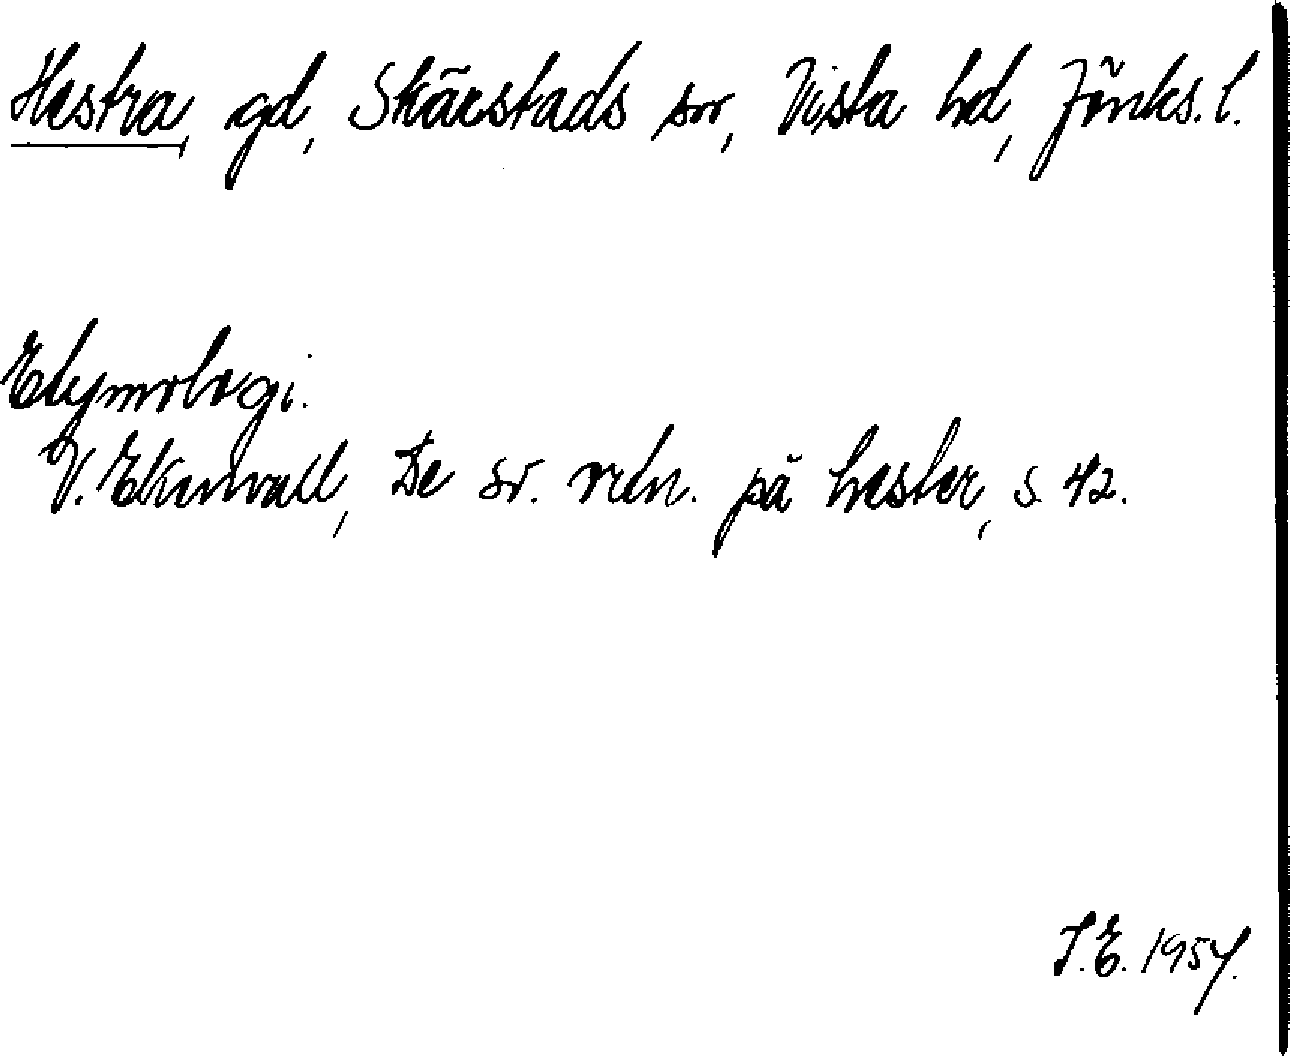 Hestra, gd, Skärstads sn, Vista hd, Jönks. l.
Etymologi.
V. Ekenvall, De sv. ortn. på hester, s. 42.
S.E. 1957.